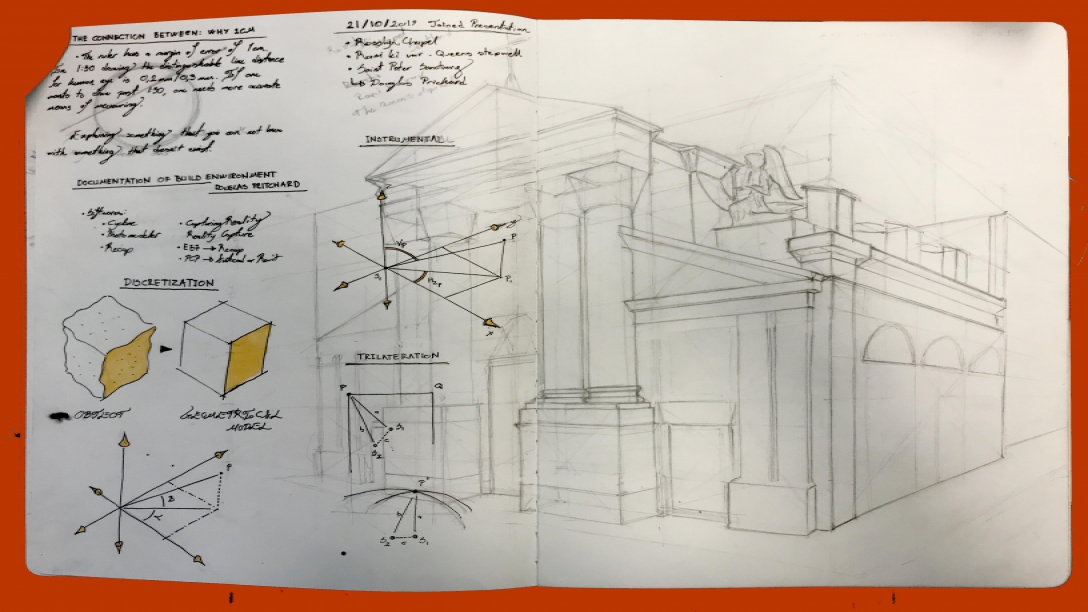 THE CONNECTION BETWEEN: WHY 1CM
• The ruler has a margin of error of 1cm.
In 1:50 drawing? the distinguishable line distance
for human eye is 0,2mm/0,3mm. If one
wants to draw past 1:50, one needs more accurate
means of measuring?
Explaining something? that you can't not know
with something? that doesn't exist!
DOCUMENTATION OF BUILD ENVIRONMENT
DOUGLAS PRITCHARD
• Software:
• Cyclone
• Photomodeler
• Recap
• Capturing Reality
Reality Capture
• E57 → Recap
• PCP → Autocad or Revit
DISCRETIZATION
OBJECT
GEOMETRICAL
MODEL
P
21/10/2019 Joined Presentation
• Rosslyn Chapel
• Rani ki vav - Queens stepwell
• Saint Peter Seminary
Douglas Prichard
INSTRUMENTAL
y
P
P₀
S₁
x
TRILATERATION
P
Q
a
b
c
S₁
S₂
P
b
a
S₂
c
S₁